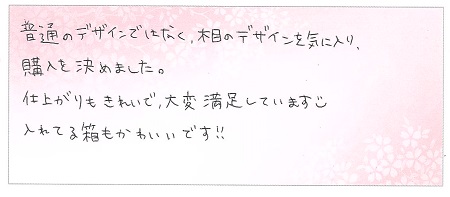 普通のデザインではなく、木目のデザインを気に入り、
購入を決めました。
仕上がりもきれいで、大変満足しています☺
入れてる箱もかわいいです!!